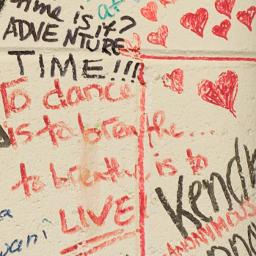 time is it?
at
ADVENTURE
TIME!!!!
To dance
is to breathe...
to breathe is to
LIVE
Kend
ANONYMOUS